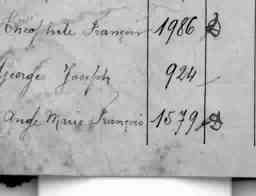 Théophile François 1986
George Joseph 924
Ange Marie François 1579